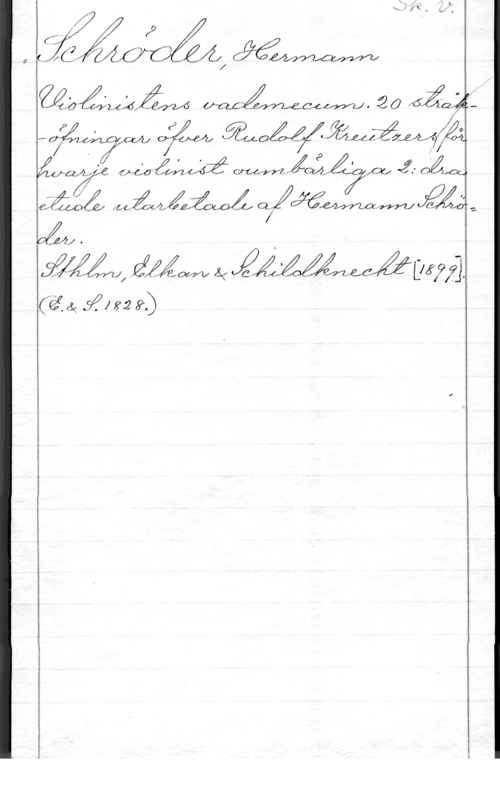 Sk. V.
Schröder, Hermann
Violinistens vademecum. 20 stråk-
-öfningar öfver Rudolf Kreutzers för
hvarje violinist oumbärliga 2:dra
etude utarbetade af Hermann Schrö-
der.
Sthlm, Elkan & Schildknecht [1899].
(E. & S. 1828.)